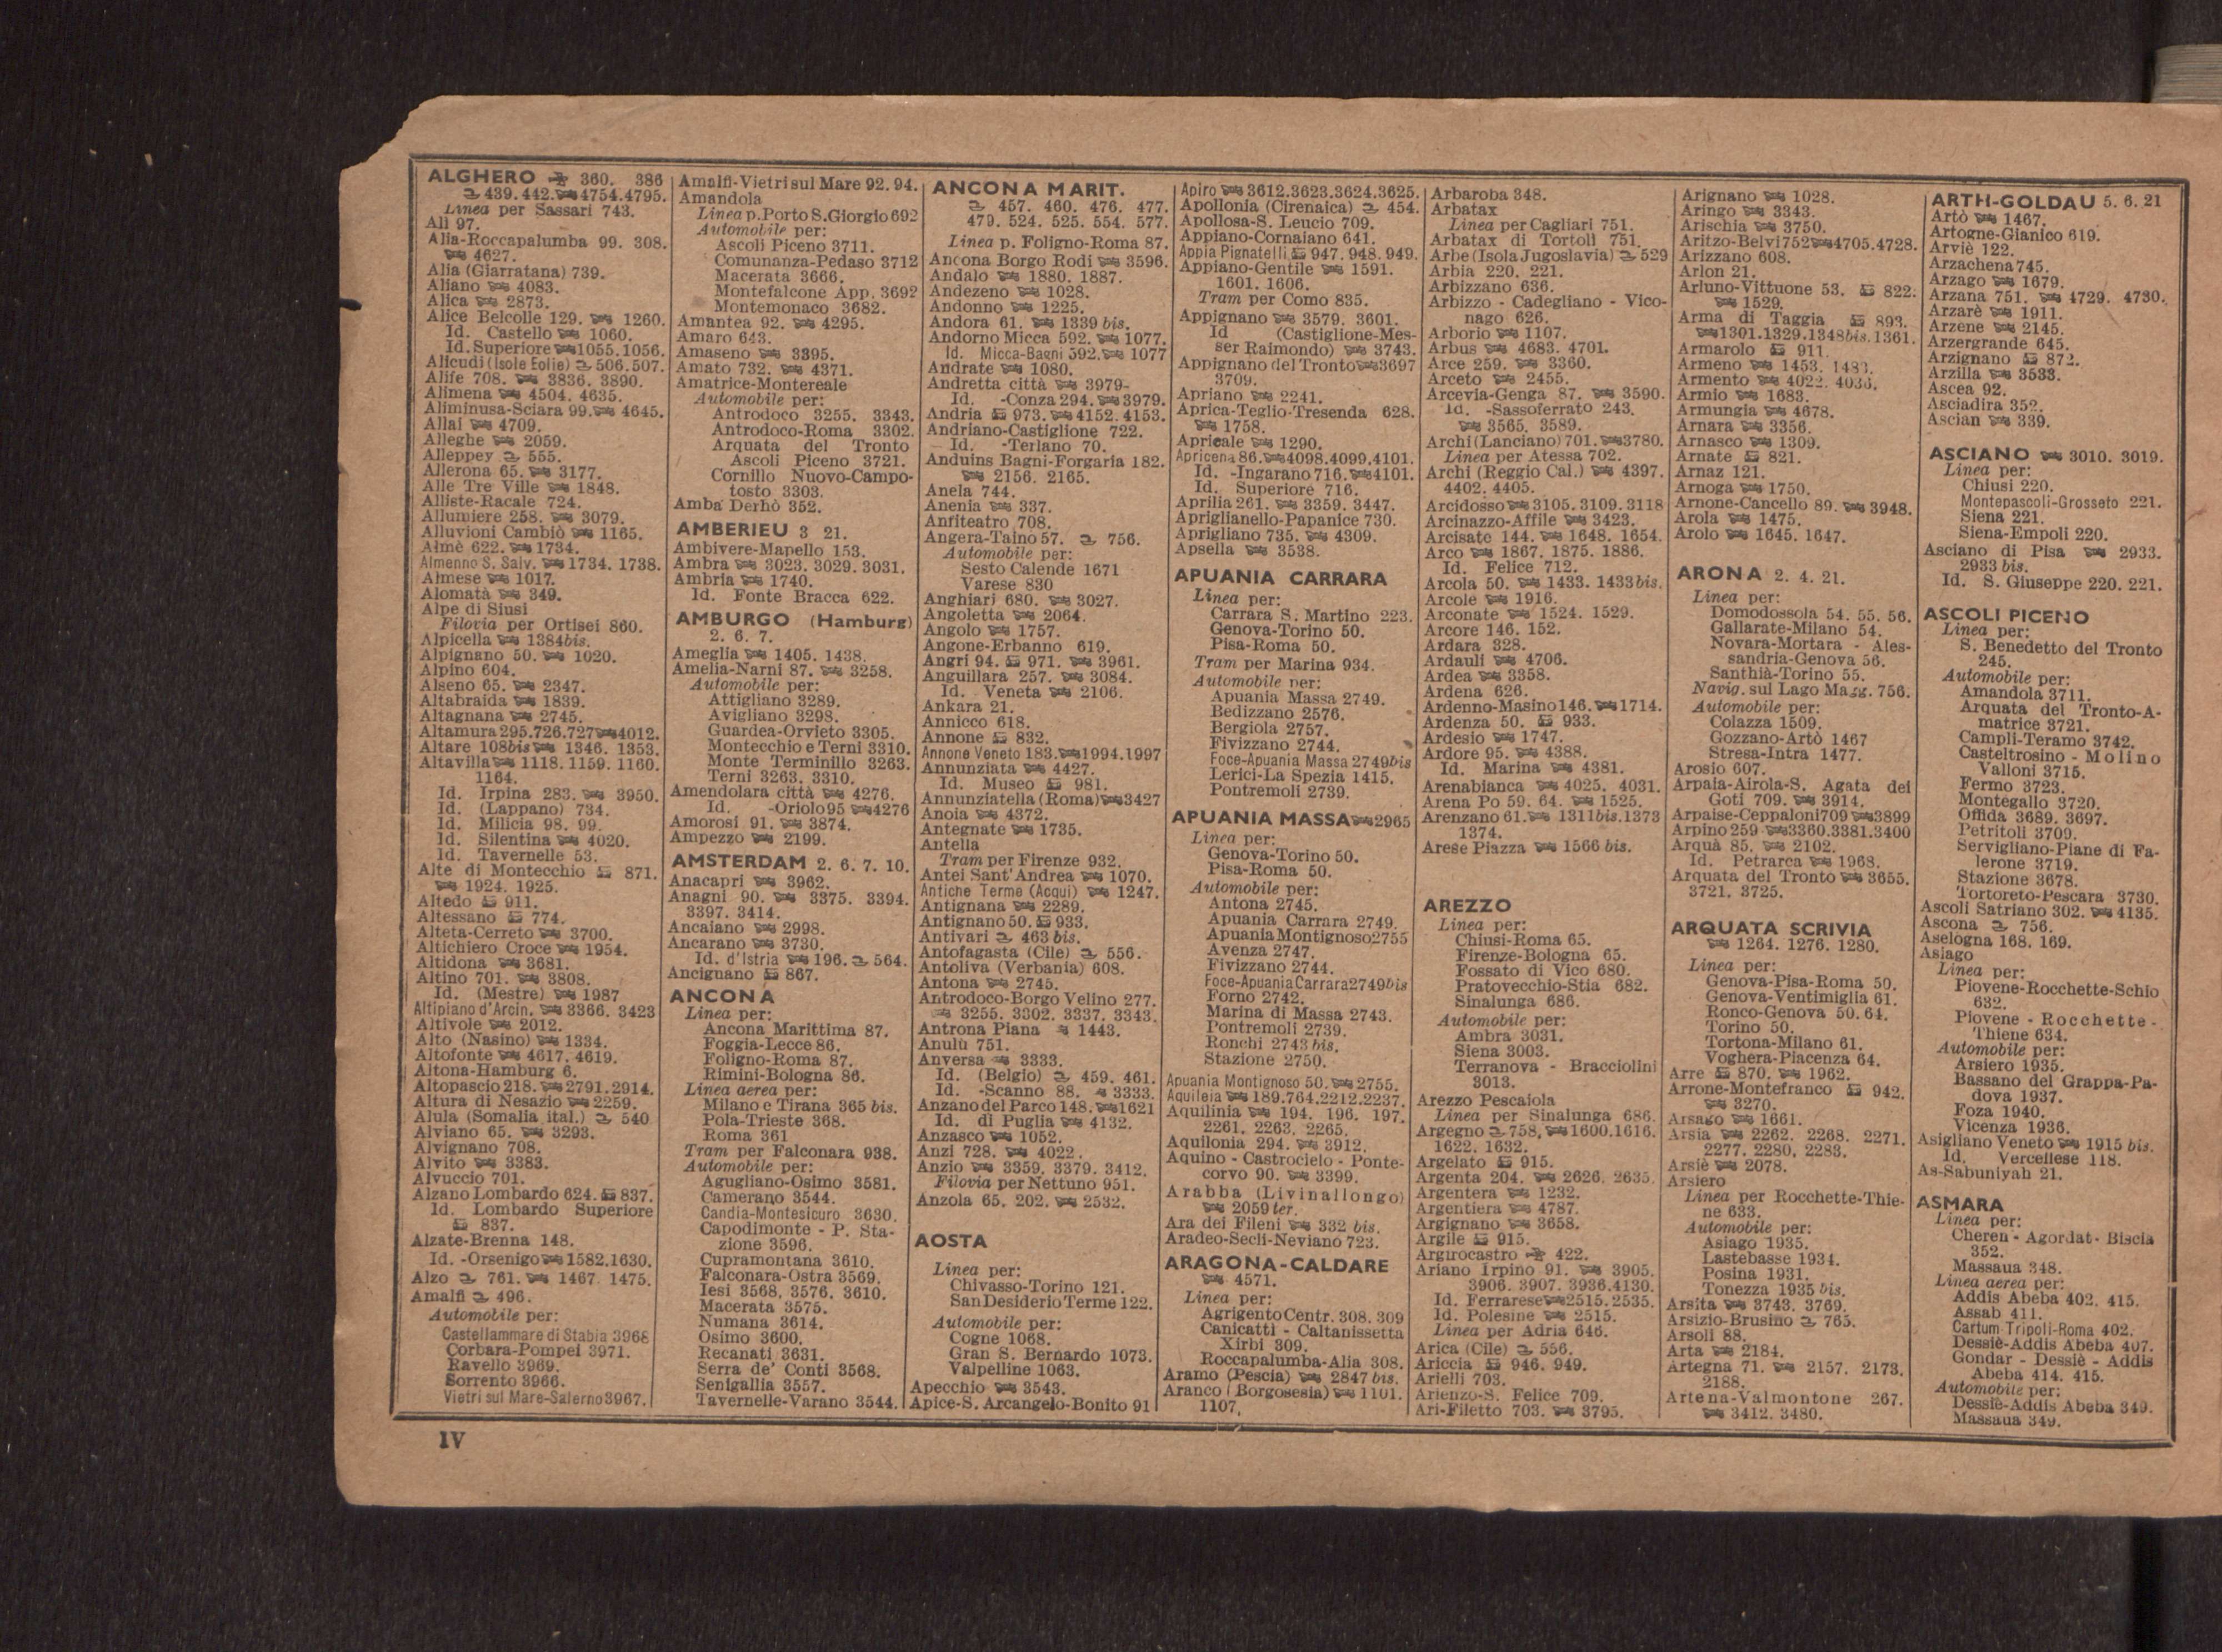 ALGHERO 360. 386
439.442. 4754.4795.
Linea per Sassari 743.
Alì 97.
Alia-Roccapalumba 99. 308.
4627.
Alia (Giarratana) 739.
Aliano 4083.
Alica 2873.
Alice Belcolle 129. 1260.
Id. Castello 1060.
Id. Superiore 1055.1056.
Alicudi (Isole Eolie) 506.507.
Alife 708. 3836. 3890.
Alimena 4504. 4635.
Aliminusa-Sciara 99. 4645.
Allai 4709.
Alleghe 2059.
Alleppey 555.
Allerona 65. 3177.
Alle Tre Ville 1848.
Alliste-Racale 724.
Allumiere 258. 3079.
Alluvioni Cambiò 1165.
Almè 622. 1734.
Almenno S. Salv. 1734. 1738.
Almese 1017.
Alomatà 349.
Alpe di Siusi
Filovia per Ortisei 860.
Alpicella 1384bis.
Alpignano 50. 1020.
Alpino 604.
Alseno 65. 2347.
Altabraida 1839.
Altagnana 2745.
Altamura 295.726.727 4012.
Altare 108bis 1346. 1353.
Altavilla 1118. 1159. 1160.
1164.
Id. Irpina 283. 3950.
Id. (Lappano) 734.
Id. Milicia 98. 99.
Id. Silentina 4020.
Id. Tavernelle 53.
Alte di Montecchio 871.
1924. 1925.
Altedo 911.
Altessano 774.
Alteta-Cerreto 3700.
Altichiero Croce 1954.
Altidona 3681.
Altino 701. 3808.
Id. (Mestre) 1987
Altipiano d'Arcin. 3366. 3423
Altivole 2012.
Alto (Nasino) 1334.
Altofonte 4617. 4619.
Altona-Hamburg 6.
Altopascio 218. 2791.2914.
Altura di Nesazio 2259.
Alula (Somalia ital.) 540
Alviano 65. 3293.
Alvignano 708.
Alvito 3383.
Alvuccio 701.
Alzano Lombardo 624. 837.
Id. Lombardo Superiore
837.
Alzate-Brenna 148.
Id. -Orsenigo 1582.1630.
Alzo 761. 1467. 1475.
Amalfi 496.
Automobile per:
Castellammare di Stabia 3968
Corbara-Pompei 3971.
Ravello 3969.
Sorrento 3966.
Vietri sul Mare-Salerno 3967.
Amalfi-Vietri sul Mare 92. 94.
Amandola
Linea p. Porto S. Giorgio 692
Automobile per:
Ascoli Piceno 3711.
Comunanza-Pedaso 3712
Macerata 3666.
Montefalcone App. 3692
Montemonaco 3682.
Amantea 92. 4295.
Amaro 643.
Amaseno 3395.
Amato 732. 4371.
Amatrice-Montereale
Automobile per:
Antrodoco 3255. 3343.
Antrodoco-Roma 3302.
Arquata del Tronto
Ascoli Piceno 3721.
Cornillo Nuovo-Campo-
tosto 3303.
Amba Derhò 352.
AMBERIEU 3 21.
Ambivere-Mapello 153.
Ambra 3023. 3029. 3031.
Ambria 1740.
Id. Fonte Bracca 622.
AMBURGO (Hamburg)
2. 6. 7.
Ameglia 1405. 1438.
Amelia-Narni 87. 3258.
Automobile per:
Attigliano 3289.
Avigliano 3298.
Guardea-Orvieto 3305.
Montecchio e Terni 3310.
Monte Terminillo 3263.
Terni 3263. 3310.
Amendolara città 4276.
Id. -Oriolo 95 4276
Amorosi 91. 3874.
Ampezzo 2199.
AMSTERDAM 2. 6. 7. 10.
Anacapri 3962.
Anagni 90. 3375. 3394.
3397. 3414.
Ancaiano 2998.
Ancarano 3730.
Id. d'Istria 196. 564.
Anciguano 867.
ANCONA
Linea per:
Ancona Marittima 87.
Foggia-Lecce 86.
Foligno-Roma 87.
Rimini-Bologna 86.
Linea aerea per:
Milano e Tirana 365 bis.
Pola-Trieste 368.
Roma 361
Tram per Falconara 938.
Automobile per:
Agugliano-Osimo 3581.
Camerano 3544.
Candia-Montesicuro 3630.
Capodimonte - P. Sta-
zione 3596.
Cupramontana 3610.
Falconara-Ostra 3569.
Iesi 3568. 3576. 3610.
Macerata 3575.
Numana 3614.
Osimo 3600.
Recanati 3631.
Serra de' Conti 3568.
Senigallia 3557.
Tavernelle-Varano 3544.
ANCONA MARIT.
457. 460. 476. 477.
479. 524. 525. 554. 577.
Linea p. Foligno-Roma 87.
Ancona Borgo Rodi 3596.
Andalo 1880. 1887.
Andezeno 1028.
Andonno 1225.
Andora 61. 1339 bis.
Andorno Micca 592. 1077.
Id. Micca-Bagni 592. 1077
Andrate 1080.
Andretta città 3979-
Id. -Conza 294. 3979.
Andria 973. 4152. 4153.
Andriano-Castiglione 722.
Id. -Terlano 70.
Anduins Bagni-Forgaria 182.
2156. 2165.
Anela 744.
Anenia 337.
Anfiteatro 708.
Angera-Taino 57. 756.
Automobile per:
Sesto Calende 1671
Varese 830
Anghiari 680. 3027.
Angoletta 2064.
Angolo 1757.
Angone-Erbanno 619.
Angri 94. 971. 3961.
Anguillara 257. 3084.
Id. Veneta 2106.
Ankara 21.
Annicco 618.
Annone 832.
Annone Veneto 183. 1994.1997
Annunziata 4427.
Id. Museo 981.
Annunziatella (Roma) 3427
Anoia 4372.
Antegnate 1735.
Antella
Tram per Firenze 932.
Antei Sant'Andrea 1070.
Antiche Terme (Acqui) 1247.
Antignana 2289.
Antignano 50. 933.
Antivari 463 bis.
Antofagasta (Cile) 556.
Antoliva (Verbania) 608.
Antona 2745.
Antrodoco-Borgo Velino 277.
3255. 3302. 3337. 3343.
Antrona Piana 1443.
Anulù 751.
Anversa 3333.
Id. (Belgio) 459. 461.
Id. -Scanno 88. 3333.
Anzano del Parco 148. 1621
Id. di Puglia 4132.
Anzasco 1052.
Anzi 728. 4022.
Anzio 3359. 3379. 3412.
Filovia per Nettuno 951.
Anzola 65. 202. 2532.
AOSTA
Linea per:
Chivasso-Torino 121.
San Desiderio Terme 122.
Automobile per:
Cogne 1068.
Gran S. Bernardo 1073.
Valpelline 1063.
Apecchio 3543.
Apice-S. Arcangelo-Bonito 91
Apiro 3612.3623.3624.3625.
Apollonia (Cirenaica) 454.
Apollosa-S. Leucio 709.
Appiano-Cornaiano 641.
Appia Pignatelli 947. 948. 949.
Appiano-Gentile 1591.
1601. 1606.
Tram per Como 835.
Appignano 3579. 3601.
Id (Castiglione-Mes-
ser Raimondo) 3743.
Appignano del Tronto 3697
3709.
Apriano 2241.
Aprica-Teglio-Tresenda 628.
1758.
Apricale 1290.
Apricena 86. 4098.4099.4101.
Id. -Ingarano 716. 4101.
Id. Superiore 716.
Aprilia 261. 3359. 3447.
Apriglianello-Papanice 730.
Aprigliano 735. 4309.
Apsella 3538.
APUANIA CARRARA
Linea per:
Carrara S. Martino 223.
Genova-Torino 50.
Pisa-Roma 50.
Tram per Marina 934.
Automobile per:
Apuania Massa 2749.
Bedizzano 2576.
Bergiola 2757.
Fivizzano 2744.
Foce-Apuania Massa 2749bis
Lerici-La Spezia 1415.
Pontremoli 2739.
APUANIA MASSA 2965
Linea per:
Genova-Torino 50.
Pisa-Roma 50.
Automobile per:
Antona 2745.
Apuania Carrara 2749.
Apuania Montignoso 2755
Avenza 2747.
Fivizzano 2744.
Foce-Apuania Carrara 2749bis
Forno 2742.
Marina di Massa 2743.
Pontremoli 2739.
Ronchi 2743 bis.
Stazione 2750.
Apuania Montignoso 50. 2755.
Aquileia 189.764.2212.2237.
Aquilinia 194. 196. 197.
2261. 2263. 2265.
Aquilonia 294. 3912.
Aquino - Castrocielo - Ponte-
corvo 90. 3399.
Arabba (Livinallongo)
2059 ter.
Ara dei Fileni 332 bis.
Aradeo-Seclì-Neviano 723.
ARAGONA-CALDARE
4571.
Linea per:
Agrigento Centr. 308. 309
Canicattì - Caltanissetta
Xirbi 309.
Roccapalumba-Alia 308.
Aramo (Pescia) 2847 bis.
Aranco (Borgosesia) 1101.
1107.
Arbaroba 348.
Arbatax
Linea per Cagliari 751.
Arbatax di Tortolì 751.
Arbe (Isola Jugoslavia) 529
Arbia 220. 221.
Arbizzano 636.
Arbizzo - Cadegliano - Vico-
nago 626.
Arborio 1107.
Arbus 4683. 4701.
Arce 259. 3360.
Arceto 2455.
Arcevia-Genga 87. 3590.
Id. -Sassoferrato 243.
3565. 3589.
Archi (Lanciano) 701. 3780.
Linea per Atessa 702.
Archi (Reggio Cal.) 4397.
4402. 4405.
Arcidosso 3105. 3109. 3118
Arcinazzo-Affile 3423.
Arcisate 144. 1648. 1654.
Arco 1867. 1875. 1886.
Id. Felice 712.
Arcola 50. 1433. 1433bis.
Arcole 1916.
Arconate 1524. 1529.
Arcore 146. 152.
Ardara 328.
Ardauli 4706.
Ardea 3358.
Ardena 626.
Ardenno-Masino 146. 1714.
Ardenza 50. 933.
Ardesio 1747.
Ardore 95. 4388.
Id. Marina 4381.
Arenabianca 4025. 4031.
Arena Po 59. 64. 1525.
Arenzano 61. 1311bis.1373
1374.
Arese Piazza 1566 bis.
AREZZO
Linea per:
Chiusi-Roma 65.
Firenze-Bologna 65.
Fossato di Vico 680.
Pratovecchio-Stia 682.
Sinalunga 686.
Automobile per:
Ambra 3031.
Siena 3003.
Terranova - Bracciolini
3013.
Arezzo Pescaiola
Linea per Sinalunga 686.
Argegno 758. 1600.1616.
1622. 1632.
Argelato 915.
Argenta 204. 2626. 2635.
Argentera 1232.
Argentiera 4787.
Argignano 3658.
Argile 915.
Argirocastro 422.
Ariano Irpino 91. 3905.
3906. 3907. 3936.4130.
Id. Ferrarese 2515.2535.
Id. Polesine 2515.
Linea per Adria 646.
Arica (Cile) 556.
Ariccia 946. 949.
Arielli 703.
Arienzo-S. Felice 709.
Ari-Filetto 703. 3795.
Arignano 1028.
Aringo 3343.
Arischia 3750.
Aritzo-Belvì 752 4705.4728.
Arizzano 608.
Arlon 21.
Arluno-Vittuone 53. 822.
1529.
Arma di Taggia 893.
1301.1329.1348bis.1361.
Armarolo 911.
Armeno 1453. 1483.
Armento 4022. 4036.
Armio 1683.
Armungia 4678.
Arnara 3356.
Arnasco 1309.
Arnate 821.
Arnaz 121.
Arnoga 1750.
Arnone-Cancello 89. 3948.
Arola 1475.
Arolo 1645. 1647.
ARONA 2. 4. 21.
Linea per:
Domodossola 54. 55. 56.
Gallarate-Milano 54.
Novara-Mortara - Ales-
sandria-Genova 56.
Santhià-Torino 55.
Navig. sul Lago Magg. 756.
Automobile per:
Colazza 1509.
Gozzano-Artò 1467
Stresa-Intra 1477.
Arosio 607.
Arpaia-Airola-S. Agata dei
Goti 709. 3914.
Arpaise-Ceppaloni 709 3899
Arpino 259 3360.3381.3400
Arquà 85. 2102.
Id. Petrarca 1968.
Arquata del Tronto 3655.
3721. 3725.
ARQUATA SCRIVIA
1264. 1276. 1280.
Linea per:
Genova-Pisa-Roma 50.
Genova-Ventimiglia 61.
Ronco-Genova 50. 64.
Torino 50.
Tortona-Milano 61.
Voghera-Piacenza 64.
Arre 870. 1962.
Arrone-Montefranco 942.
3270.
Arsago 1661.
Arsia 2262. 2268. 2271.
2277. 2280. 2283.
Arsiè 2078.
Arsiero
Linea per Rocchette-Thie-
ne 633.
Automobile per:
Asiago 1935.
Lastebasse 1934.
Posina 1931.
Tonezza 1935 bis.
Arsita 3743. 3769.
Arsizio-Brusino 765.
Arsoli 88.
Arta 2184.
Artegna 71. 2157. 2173.
2188.
Artena-Valmontone 267.
3412. 3480.
ARTH-GOLDAU 5. 6. 21
Artò 1467.
Artogne-Gianico 619.
Arviè 122.
Arzachena 745.
Arzago 1679.
Arzana 751. 4729. 4730.
Arzarè 1911.
Arzene 2145.
Arzergrande 645.
Arzignano 872.
Arzilla 3533.
Ascea 92.
Asciadira 352.
Ascian 339.
ASCIANO 3010. 3019.
Linea per:
Chiusi 220.
Montepascoli-Grosseto 221.
Siena 221.
Siena-Empoli 220.
Asciano di Pisa 2933.
2933 bis.
Id. S. Giuseppe 220. 221.
ASCOLI PICENO
Linea per:
S. Benedetto del Tronto
245.
Automobile per:
Amandola 3711.
Arquata del Tronto-A-
matrice 3721.
Campli-Teramo 3742.
Casteltrosino - Molino
Valloni 3715.
Fermo 3723.
Montegallo 3720.
Offida 3689. 3697.
Petritoli 3709.
Servigliano-Piane di Fa-
lerone 3719.
Stazione 3678.
Tortoreto-Pescara 3730.
Ascoli Satriano 302. 4135.
Ascona 756.
Aselogna 168. 169.
Asiago
Linea per:
Piovene-Rocchette-Schio
632.
Piovene - Rocchette -
Thiene 634.
Automobile per:
Arsiero 1935.
Bassano del Grappa-Pa-
dova 1937.
Foza 1940.
Vicenza 1936.
Asigliano Veneto 1915 bis.
Id. Vercellese 118.
As-Sabuniyah 21.
ASMARA
Linea per:
Cheren - Agordat - Biscia
352.
Massaua 348.
Linea aerea per:
Addis Abeba 402. 415.
Assab 411.
Cartum-Tripoli-Roma 402.
Dessiè-Addis Abeba 407.
Gondar - Dessiè - Addis
Abeba 414. 415.
Automobile per:
Dessiè-Addis Abeba 349.
Massaua 349.
IV